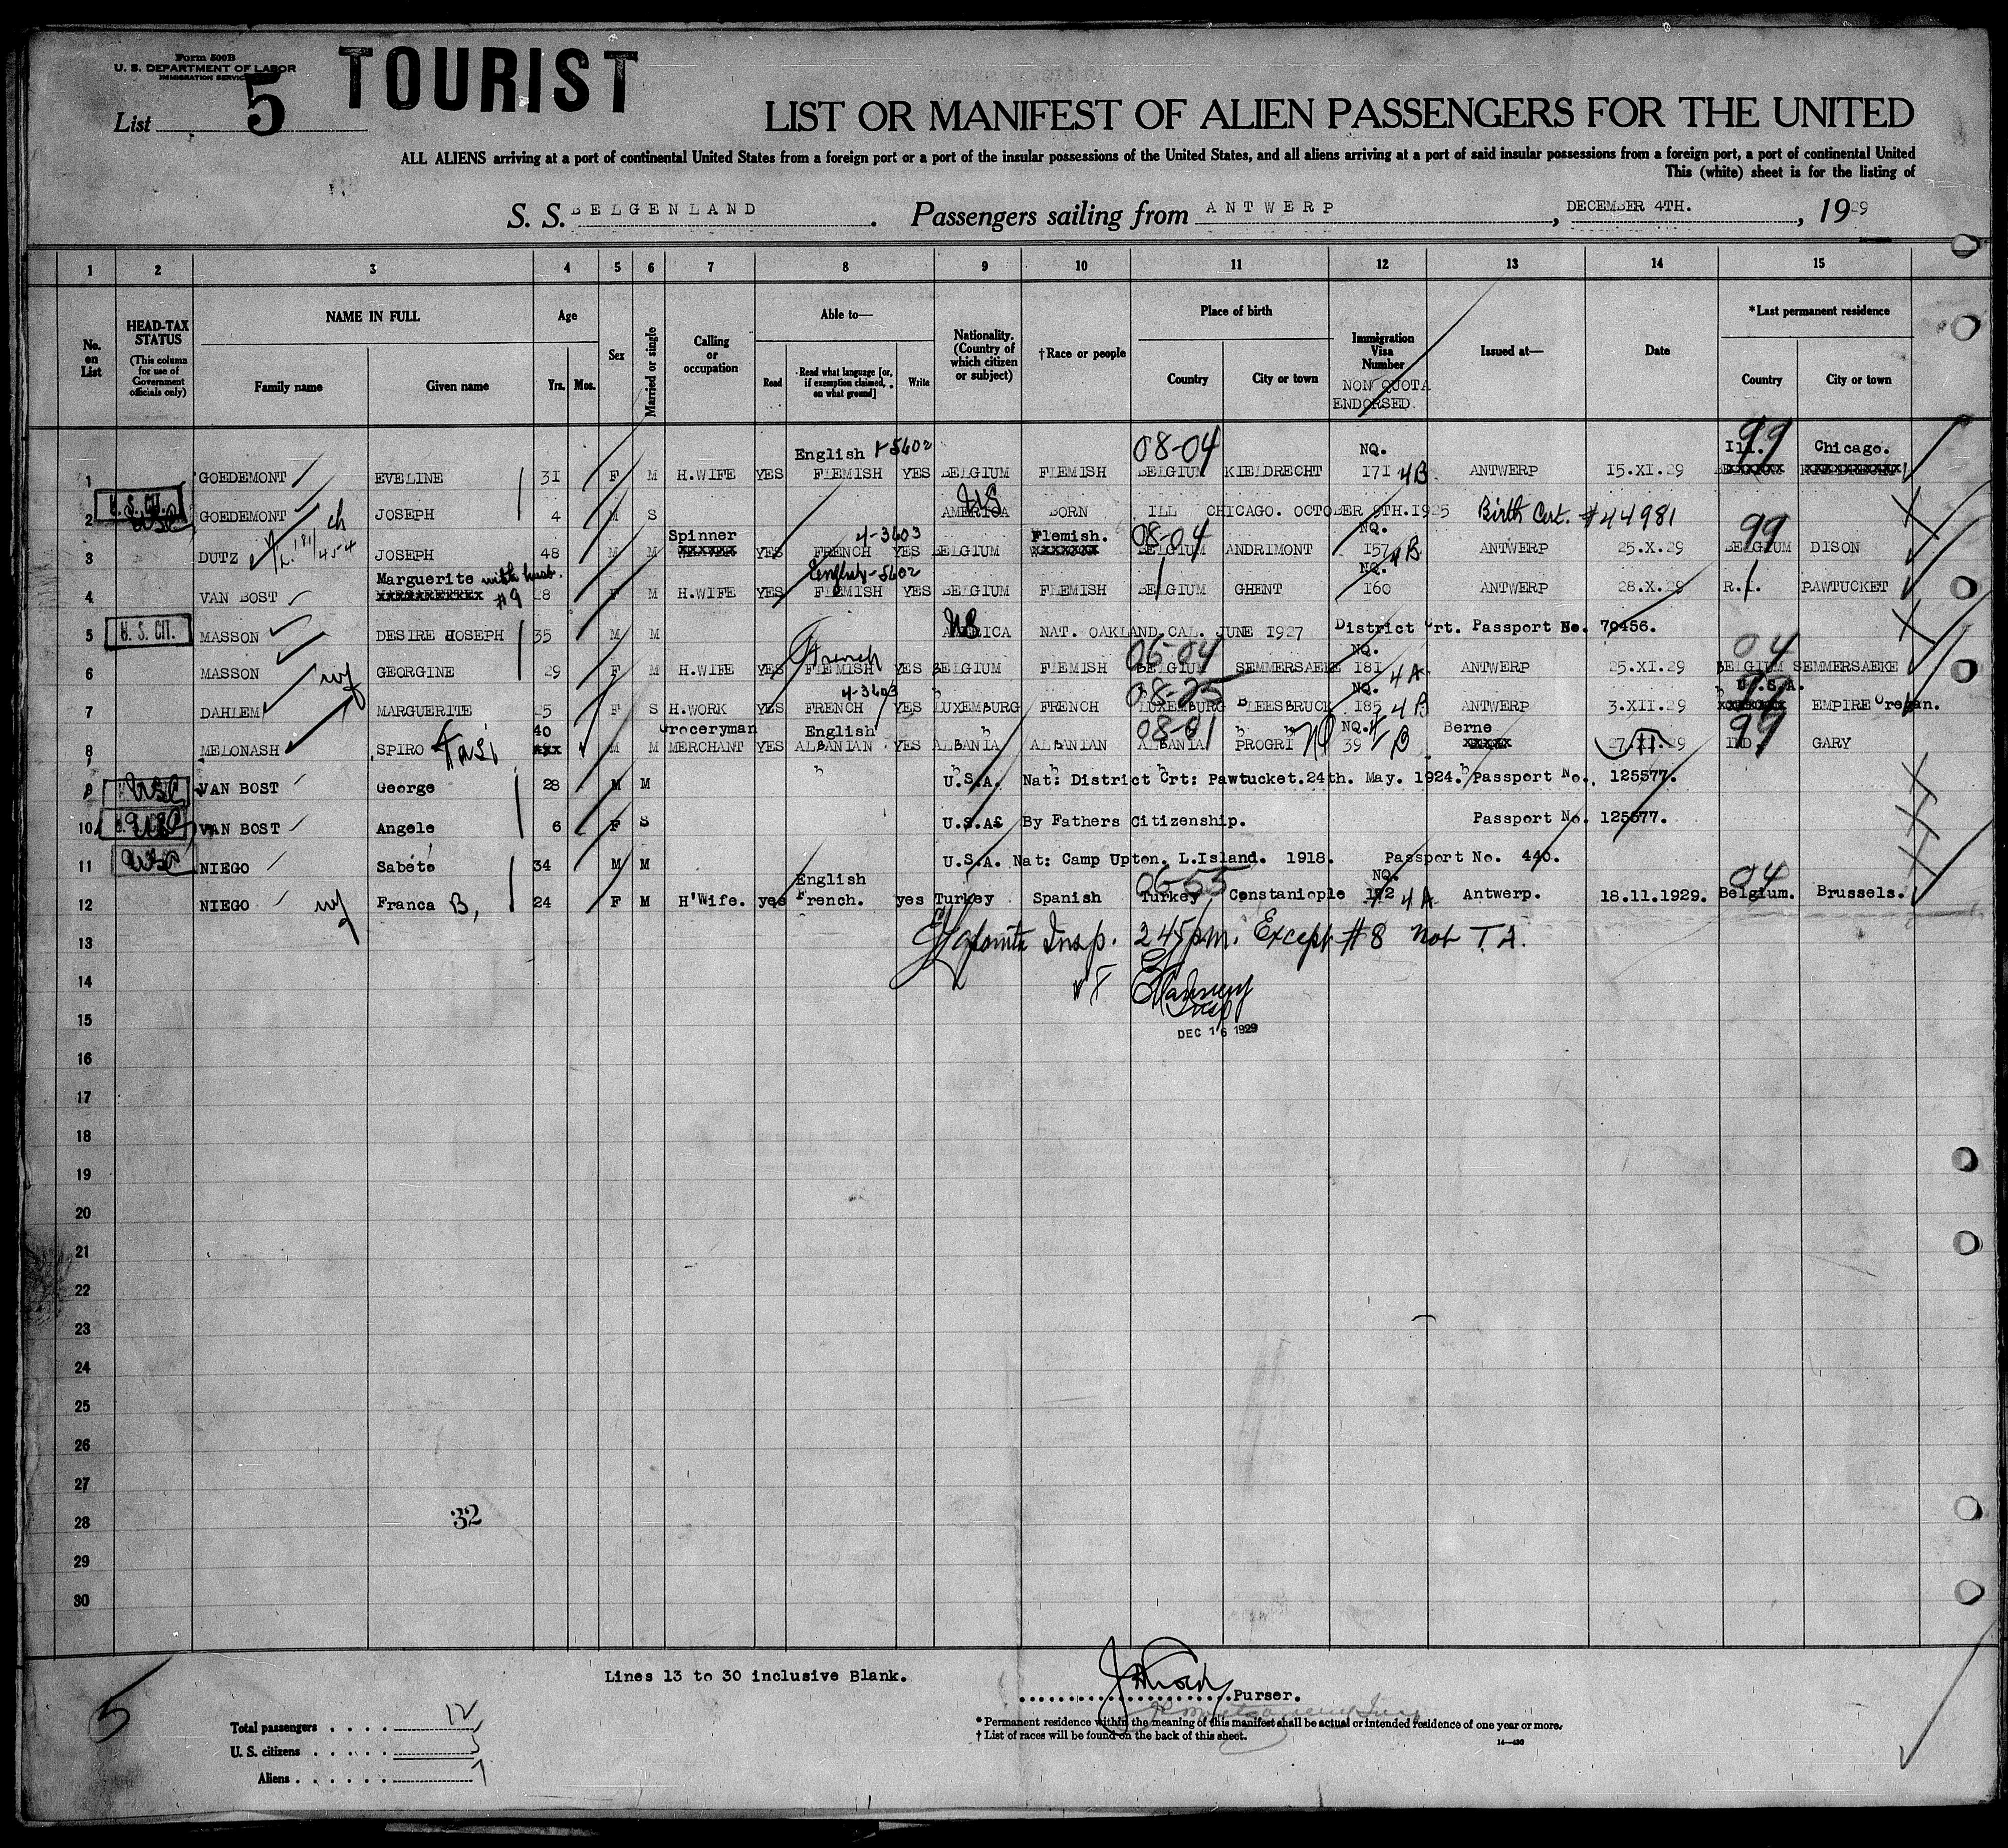 Form 500B
U. S. DEPARTMENT OF LABOR
IMMIGRATION SERVICE
TOURIST
List 5
LIST OR MANIFEST OF ALIEN PASSENGERS FOR THE UNITED
ALL ALIENS arriving at a port of continental United States from a foreign port or a port of the insular possessions of the United States, and all aliens arriving at a port of said insular possessions from a foreign port, a port of continental United
This (white) sheet is for the listing of
S. S. BELGENLAND. Passengers sailing from ANTWERP, DECEMBER 4TH., 1929
1 2 3 4 5 6 7 8 9 10 11 12 13 14 15
No. on List
HEAD-TAX STATUS (This column for use of Government officials only)
NAME IN FULL Family name Given name
Age Yrs. Mos.
Sex
Married or single
Calling or occupation
Able to— Read Read what language [or, if exemption claimed, on what ground] Write
Nationality. (Country of which citizen or subject)
†Race or people
Place of birth Country City or town
Immigration Visa Number NON QUOTA ENDORSED
Issued at—
Date
*Last permanent residence Country City or town
English 1-5602 08-04 NQ. Ill. 99 Chicago.
1 GOEDEMONT EVELINE 31 F M H.WIFE YES FLEMISH YES BELGIUM FLEMISH BELGIUM KIELDRECHT 171 4B ANTWERP 15.XI.29
U. S. CIT. USC US
2 GOEDEMONT JOSEPH 4 M S AMERICA BORN ILL CHICAGO. OCTOBER 9TH.1925 Birth Cert. #44981
ch Spinner 4-3603 Flemish. 08-04 NQ. 99
3 DUTZ JOSEPH 48 M M YES FRENCH YES BELGIUM BELGIUM ANDRIMONT 157 4B ANTWERP 25.X.29 BELGIUM DISON
Marguerite with husb. #9 English-5602 NQ.
4 VAN BOST 28 F M H.WIFE YES FLEMISH YES BELGIUM FLEMISH BELGIUM GHENT 160 ANTWERP 28.X.29 R.I. PAWTUCKET
U. S. CIT. US
5 MASSON DESIRE JOSEPH 35 M M AMERICA NAT. OAKLAND.CAL. JUNE 1927 District Crt. Passport No. 70456.
French 06-04 NQ. 04
6 MASSON GEORGINE 29 F M H.WIFE YES FLEMISH YES BELGIUM FLEMISH SEMMERSAEKE 181 4A ANTWERP 25.XI.29 BELGIUM SEMMERSAEKE
4-3603 08-25 NQ. U.S.A. 99
7 DAHLEM MARGUERITE 25 F S H.WORK YES FRENCH YES LUXEMBURG FRENCH LUXEMBURG BLEESBRUCK 185 4B ANTWERP 3.XII.29 EMPIRE Oregan.
40 Groceryman English 08-01 NQ. Berne 99
8 MELONASH SPIRO Tasi M M MERCHANT YES ALBANIAN YES ALBANIA ALBANIAN ALBANIA PROGRI 39 B 27.XI.29 IND. GARY
USC
9 VAN BOST George 28 M M U.S.A. Nat: District Crt: Pawtucket.24th. May. 1924. Passport No. 125577.
USC
10 VAN BOST Angele 6 F S U.S.A. By Fathers Citizenship. Passport No. 125577.
USC
11 NIEGO Sabeto 34 M M U.S.A. Nat: Camp Upton. L.Island. 1918. Passport No. 440.
English 06-55 NQ. 04
12 NIEGO Franca B, 24 F M H'Wife. yes French. yes Turkey Spanish Turkey Constaniople 172 4A Antwerp. 18.11.1929. Belgium. Brussels.
13 Insp. 2 45 pm. Except #8 not T.A.
14
Insp
15 DEC 16 1929
16
17
18
19
20
21
22
23
24
25
26
27
28 32
29
30
Lines 13 to 30 inclusive Blank.
Purser.
5
Total passengers 12
U. S. citizens 5
Aliens 7
* Permanent residence within the meaning of this manifest shall be actual or intended residence of one year or more.
† List of races will be found on the back of this sheet.
14—430